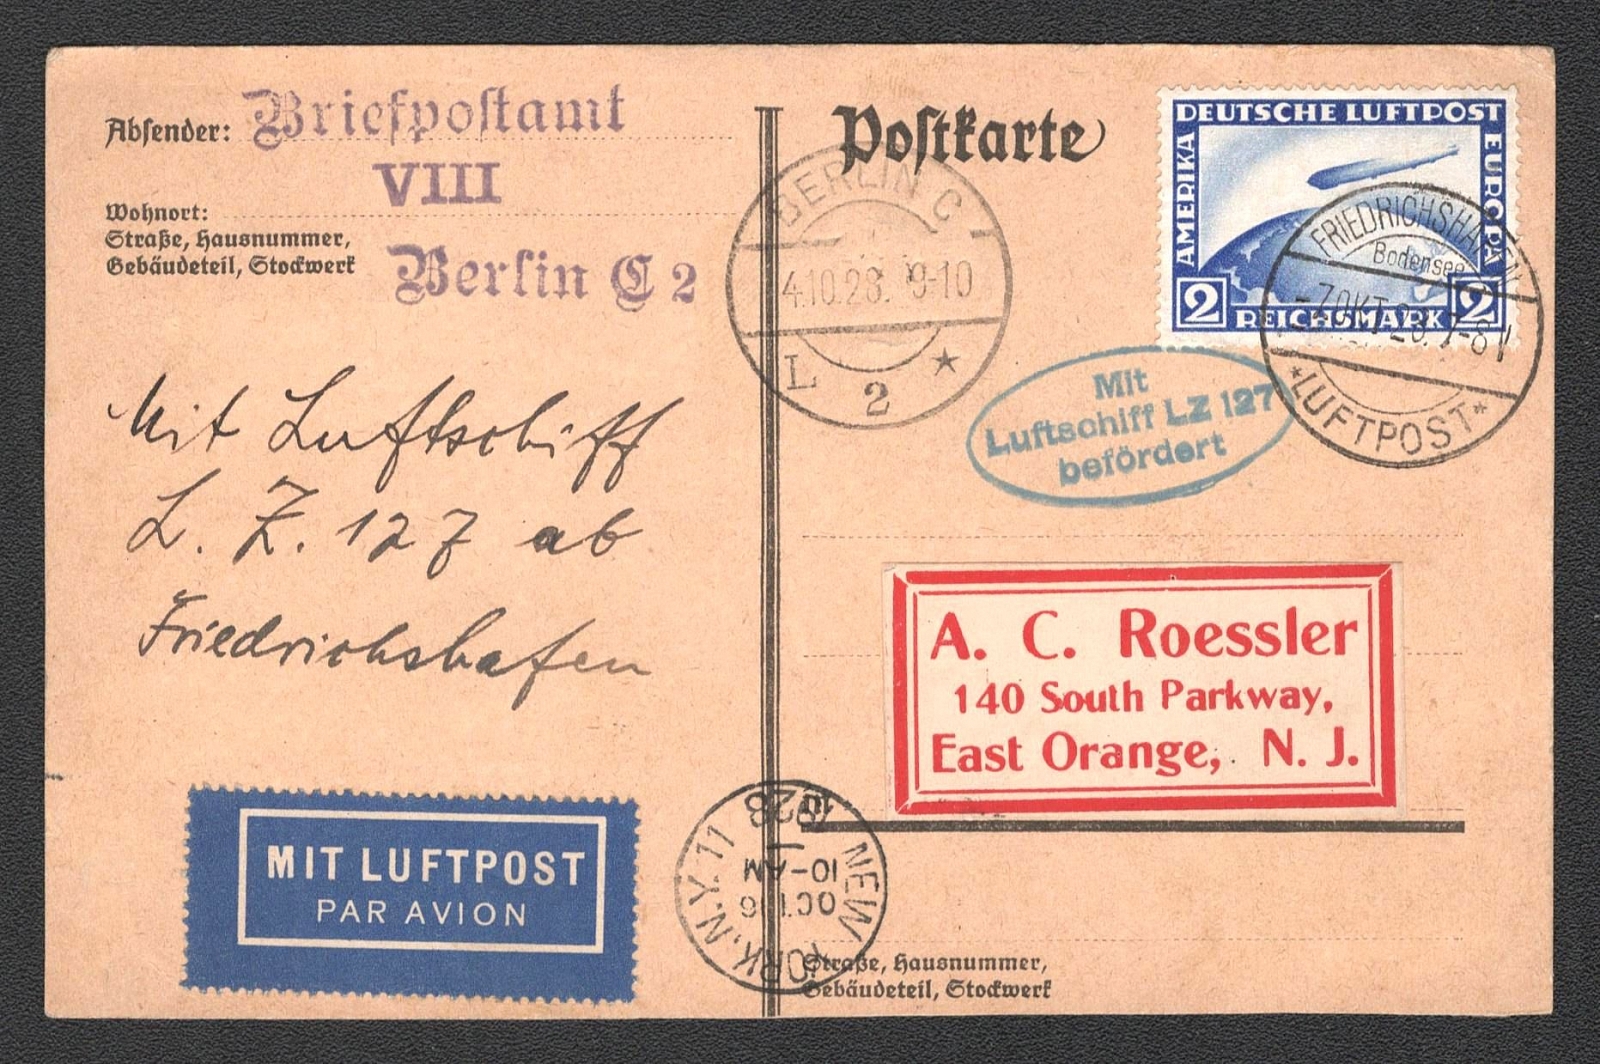 Absender:
Briefpostamt
VIII
Berlin C 2
Wohnort:
Straße, Hausnummer,
Gebäudeteil, Stockwerk
Mit Luftschiff
L. Z. 127 ab
Friedrichshafen
MIT LUFTPOST
PAR AVION
Postkarte
BERLIN C
4.10.28. 9-10
L 2 *
DEUTSCHE LUFTPOST
AMERIKA
EUROPA
2 REICHSMARK 2
FRIEDRICHSHAFEN
Bodensee
-7.OKT.28. 7-8 V
*LUFTPOST*
Mit
Luftschiff LZ 127
befördert
A. C. Roessler
140 South Parkway,
East Orange, N. J.
NEW YORK, N.Y. 11
OCT 16
10-AM
1928
Straße, Hausnummer,
Gebäudeteil, Stockwerk